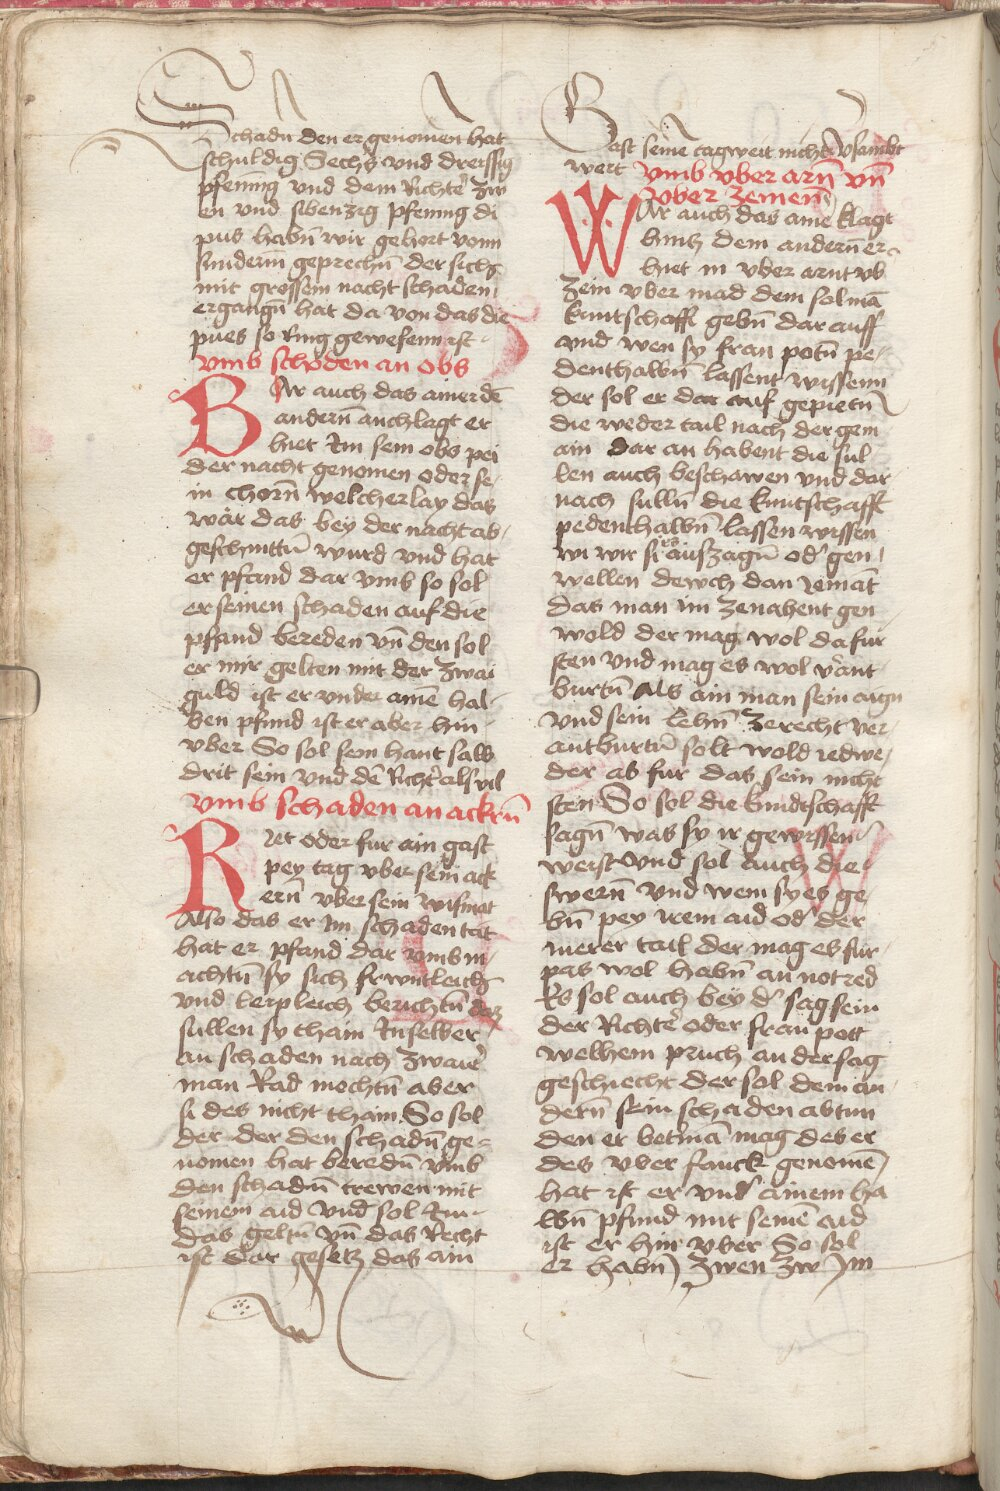 Schadn den er genomen hat
schuldig Sechs vnd dreissig
pfening vnd dem Richter zw
en vnd sibenzig pfening di
pus habn̄ wir gehort vonn
sunderm̄ geprechn̄ der sich
mit grossem nacht schaden
ergangn̄ hat da von das die
pues so Ring gewesenn ist
vmb schoden an obs
Bar auch das ainer dē
andern̄ an chlagt er
hiet Im sein obs pei
der nacht genomen oder se
in chorn̄ welcherlay das
wår das bey der nacht ab
geschnittn̄ wurd vnd hat
er pfand dar vmb so sol
er seinen schaden auf die
pfand bereden vn̄ den sol
er mir gelten mit der zwai
guld ist er vnder ainē hal
ben pfund ist er aber hin
vber So sol sein hant salb
drit sein vnd dē Richter als vil
vmb schaden an ackrn̄
Ret oder fur ain gast
pey tag vber sein ack
ern̄ vber sein wismat
Also das er Im schaden tat
hat er pfand dar vmb in
achtn̄ sy sich frwntleich
vnd lerpleich berichtn̄ das
sullen sy thain Inselber
an schaden nach zwaier
man Rad mochtn̄ aber
si des nicht thain So sol
der der den schadn̄ ge
nomen hat beredn̄ vmb
den schadn̄ trewen mit
seinem aid vnd sol Im
das geltn̄ vn̄ das Recht
ist dar gesetz das ain
Gast seine tagweit nicht vsambt
wert vmb vber arn̄ vn̄
vber zemenē
War auch das aine klagt
hincz dem andern̄ er
hiet in vber arnt vb
zein vber mad dem sol mā
kuntschafft gebn̄ dar auff
vnd wen sy fran potn̄ pe
denthalbn̄ lassent wissenn
der sol er dar auf gepietn̄
die weder tail nach der gem
ain dar an habent die sul
len auch beschawen vnd dar
nach sulln̄ die kuntschafft
pedenthalbn̄ lassen wissen
wi wir si es auszagn̄ od' gen
wellen dewch dan yemāt
das man im ze nahent gen
wold der mag wol da fur
sten vnd mag es wol v'ant
burtn̄ Als ain man sein aign
vnd sein lehn̄ ze recht ver
antburtn̄ solt wold iedwe
der ab fur das sein nicht
sten So sol die kundtschafft
sagn̄ was sy ir gewissen
weist vnd sol auch die
swern̄ vnd wem sy es ge
bn̄ pey irem aid od' der
merer tail der mag es fur
pas wol habn̄ an notred
Es sol auch bey d' sag sein
der Richter oder fran pott
welhem pruch an der sag
geschiecht der sol dem an
dern̄ sein schaden abtun
den er bet'mā mag des er
des vber fanck genomē
hat ist er vnd' ainem ha
lbn̄ pfund mit seinē aid
ist er hin vber So sol
er habn̄ zwen zw Im